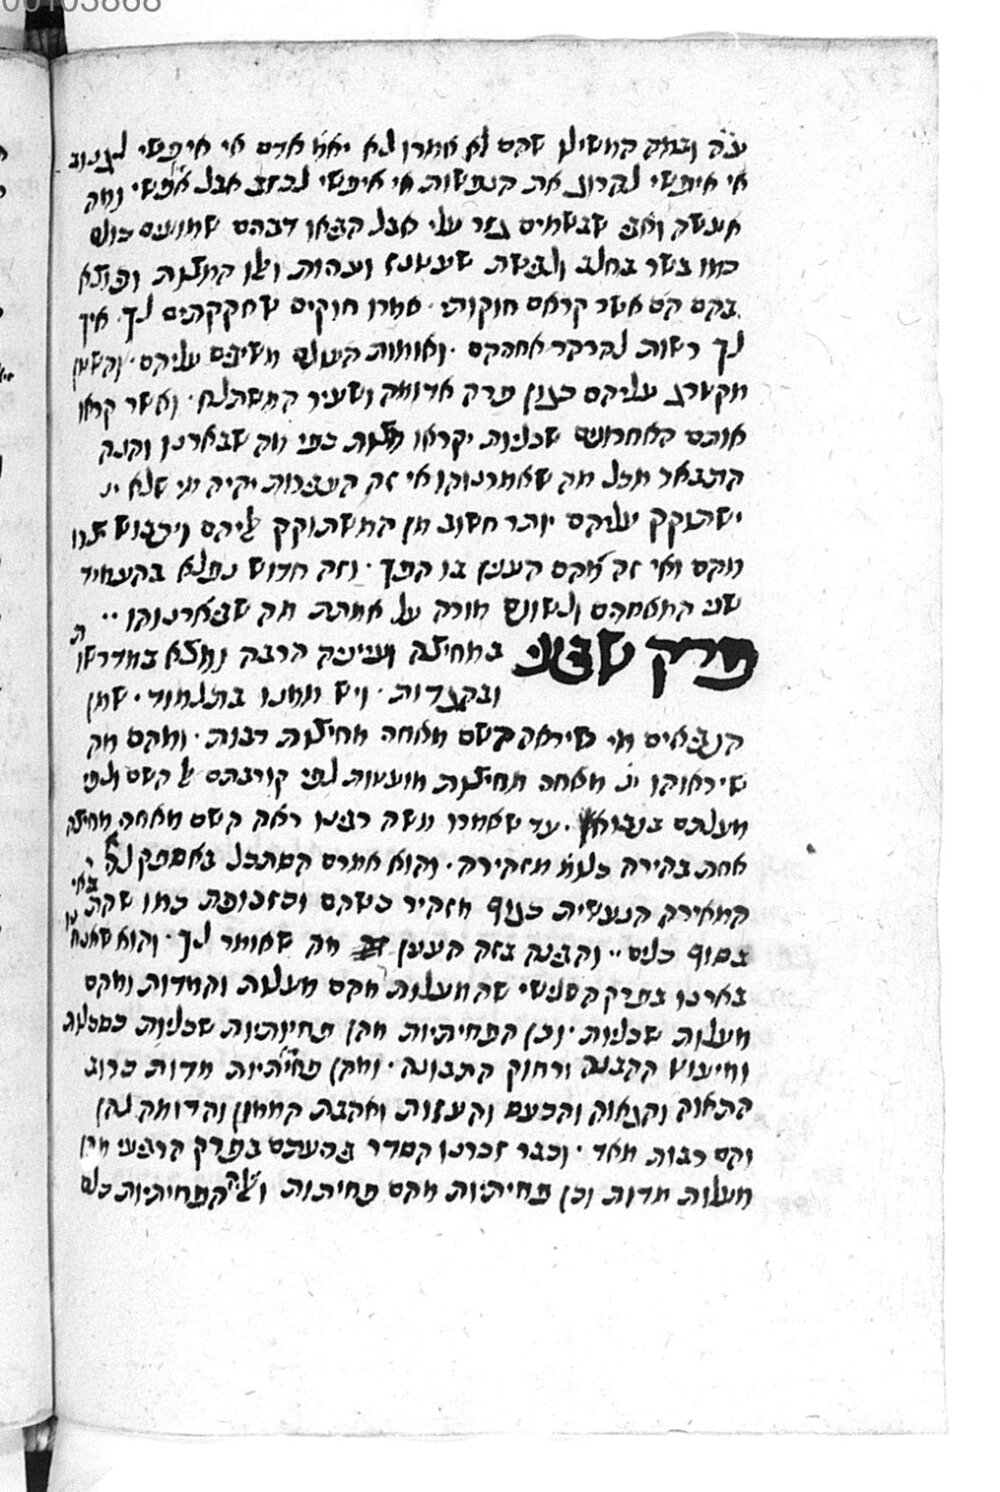 00103868
עה ובמה המשילו שהם לא אמרו לא יאמ׳ אדם אי איפשי לגנוב
אי איפשי להרוג את הנפשות אי איפשי לכזב אבל אפשי ומה
אעשה ואבי שבשמים גזר עלי אבל הביאו דברים שמועיים כולם
כמו בשר בחלב ולבישת שעטנז ועריות ואלו המצות וכיוצא
בהם הם אשר קראם חוקותי. אמרו חוקים שחקקתים לך. אין
לך רשות להרהר אחריהם. ואומות העולם משיבים עליהם. והשטן
מקטרג עליהם כגון פרה אדומה ושעיר המשתלח. ואשר קראו
אותם האחרונים שכליות יקראו מצות כפי מה שבארנו והנה
התבאר מכל מה שאמרנוהו אי זה העבירות יהיה מי שלא י
ישתוקק עליהם יותר חשוב מן המשתוקק אליהם ויכבוש יצרו
מהם ואי זה מהם הענין בו הפך. וזה חדוש נפלא בהעמיד
שני המאמרים ולשונם מורה על אמתת מה שביארנוהו..
פרק שביעי במחיצה ועניניה הרבה נמצא במדרשות
ובהגדות. ויש ממנו בתלמוד. שמן
הנביאים מי שיראה השם מאחרי מחיצות רבות. ומהם מה
שיראוהו י׳ מאחרי מחיצות מועטות לפי קורבתם אל השם ולפי
מעלתם בנבואה. עד שאמרו משה רבינו ראה השם מאחרי מחיצה
אחת בהירה כלומ׳ מזהירה. והוא אמרם הסתכל באספקלריא
המאירה הנעשית מגוף מזהיר כשהם וכזכוכית כמו שהתבאר
בסוף כלים.. והכונה בזה הענין מה שאומר לך. והוא שאנחנו
בארנו בפרק השלישי שהמעלות מהם מעלות והמדות ומהם
מעלות שכליות. וכן הפחיתיות מהן פחיתיות שכליות כסכלות
ומיעוט ההבנה ורחוק התבונה. ומהן פחיתיות מדות כרוב
התאוה והגאוה והכעס והעזות ואהבת הממון והדומה להן
והם רבות מאד. וכבר זכרנו הסדר בהערכם בפרק הרביעי מהן
מעלות מדות וכן פחיתיות מהם פחיתות ואלה הפחיתיות כלם